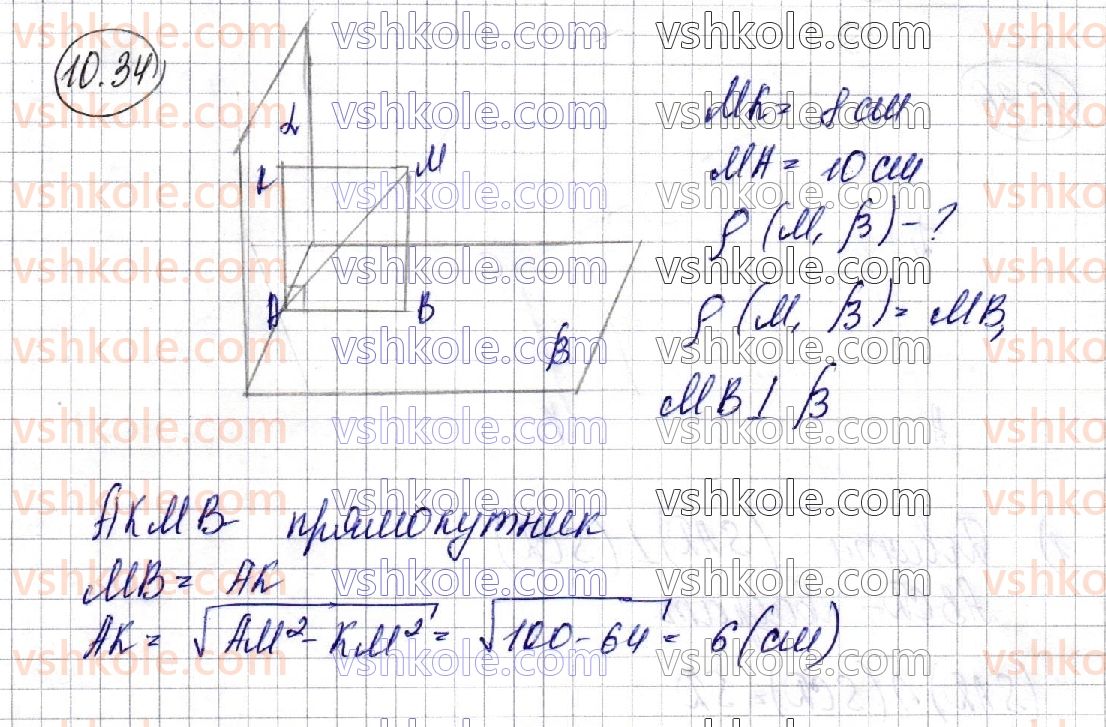 10.34
α
K M
A B
β
MK = 8 см
MA = 10 см
ρ (M, β) - ?
ρ (M, β) = MB,
MB ⊥ β
AKMB прямокутник
MB = AK
AK = √AM² - KM² = √100 - 64 = 6 (см)
vshkole.com